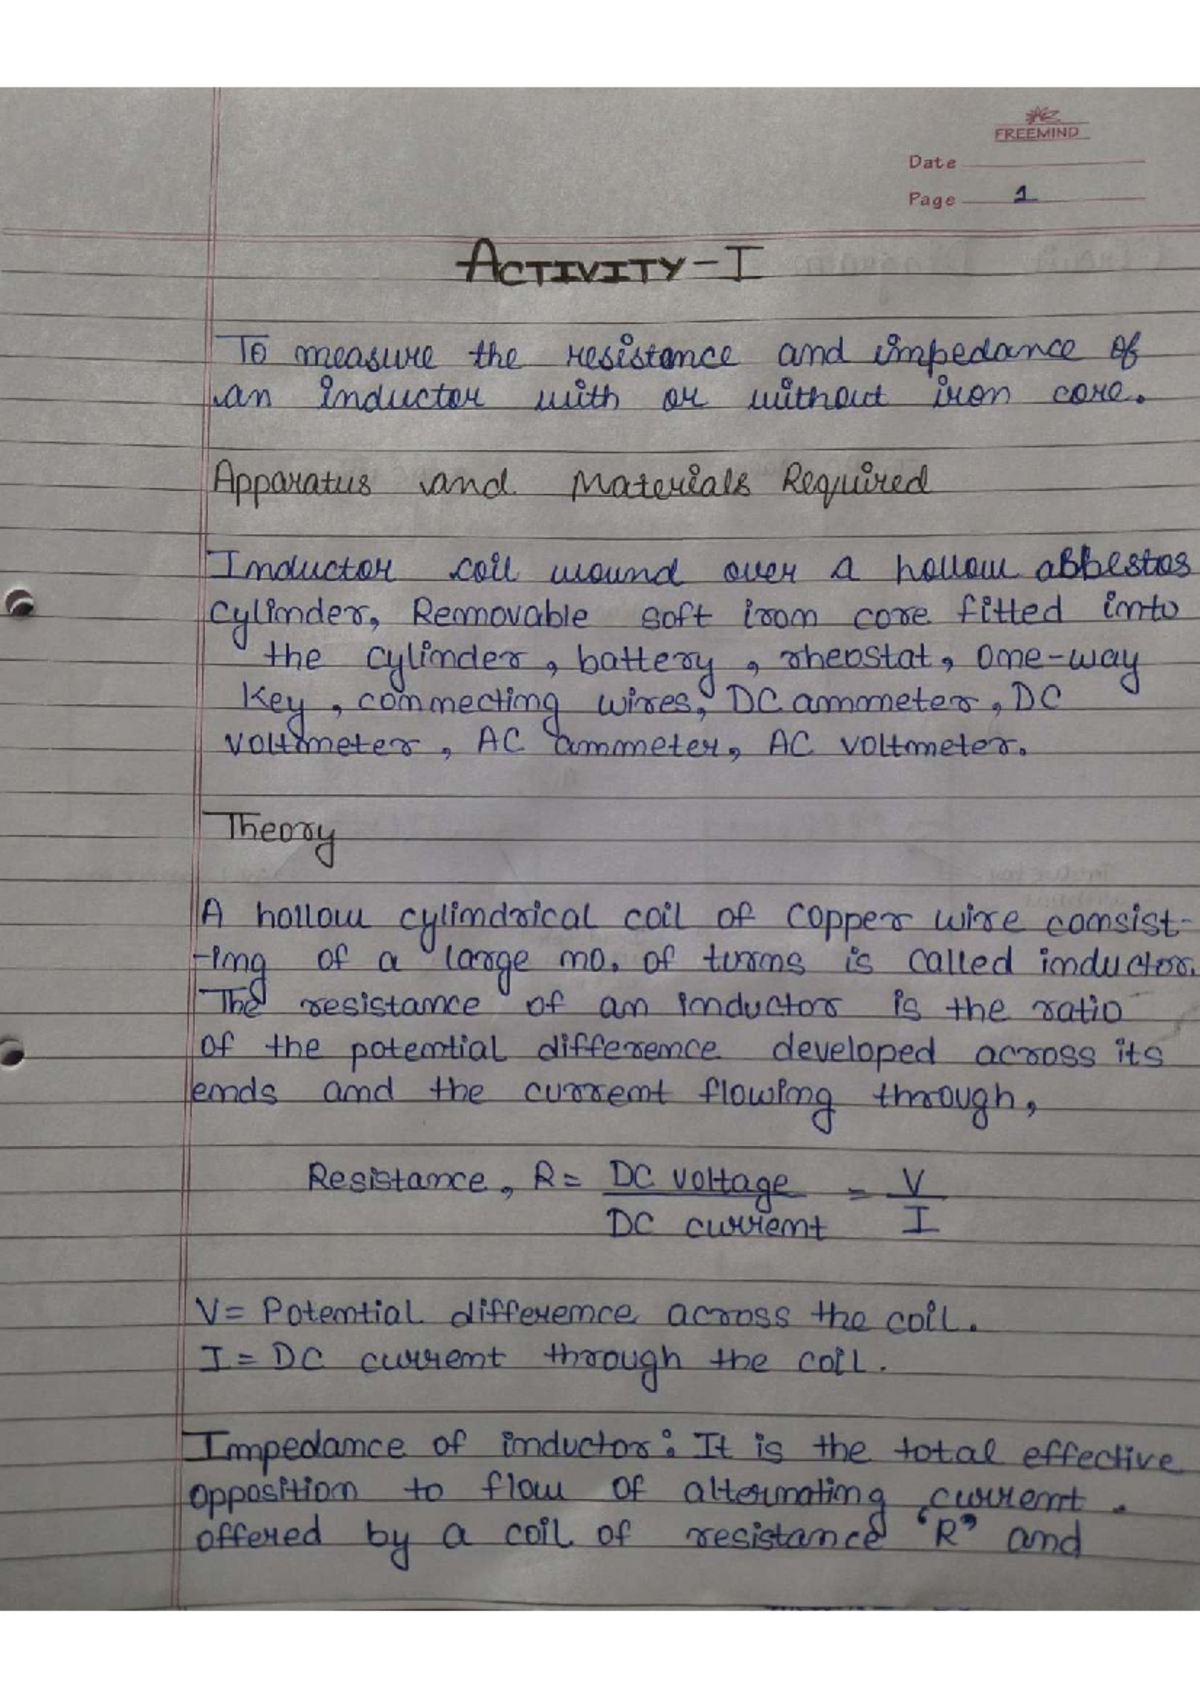 FREEMIND
Date
Page 1
ACTIVITY-I
To measure the resistance and impedance of
an inductor with or without iron core.
Apparatus and Materials Required
Inductor coil wound over a hollow abbestos
cylinder, Removable soft iron core fitted into
the cylinder, battery, rheostat, one-way
key, connecting wires, DC ammeter, DC
voltmeter, AC ammeter, AC voltmeter.
Theory
A hollow cylindrical coil of copper wire consist-
-ing of a large no. of turns is called inductor.
The resistance of an inductor is the ratio
of the potential difference developed across its
ends and the current flowing through,
Resistance, R = DC voltage = V
DC current I
V = Potential difference across the coil.
I = DC current through the coil.
Impedance of inductor: It is the total effective
opposition to flow of alternating current.
offered by a coil of resistance 'R' and